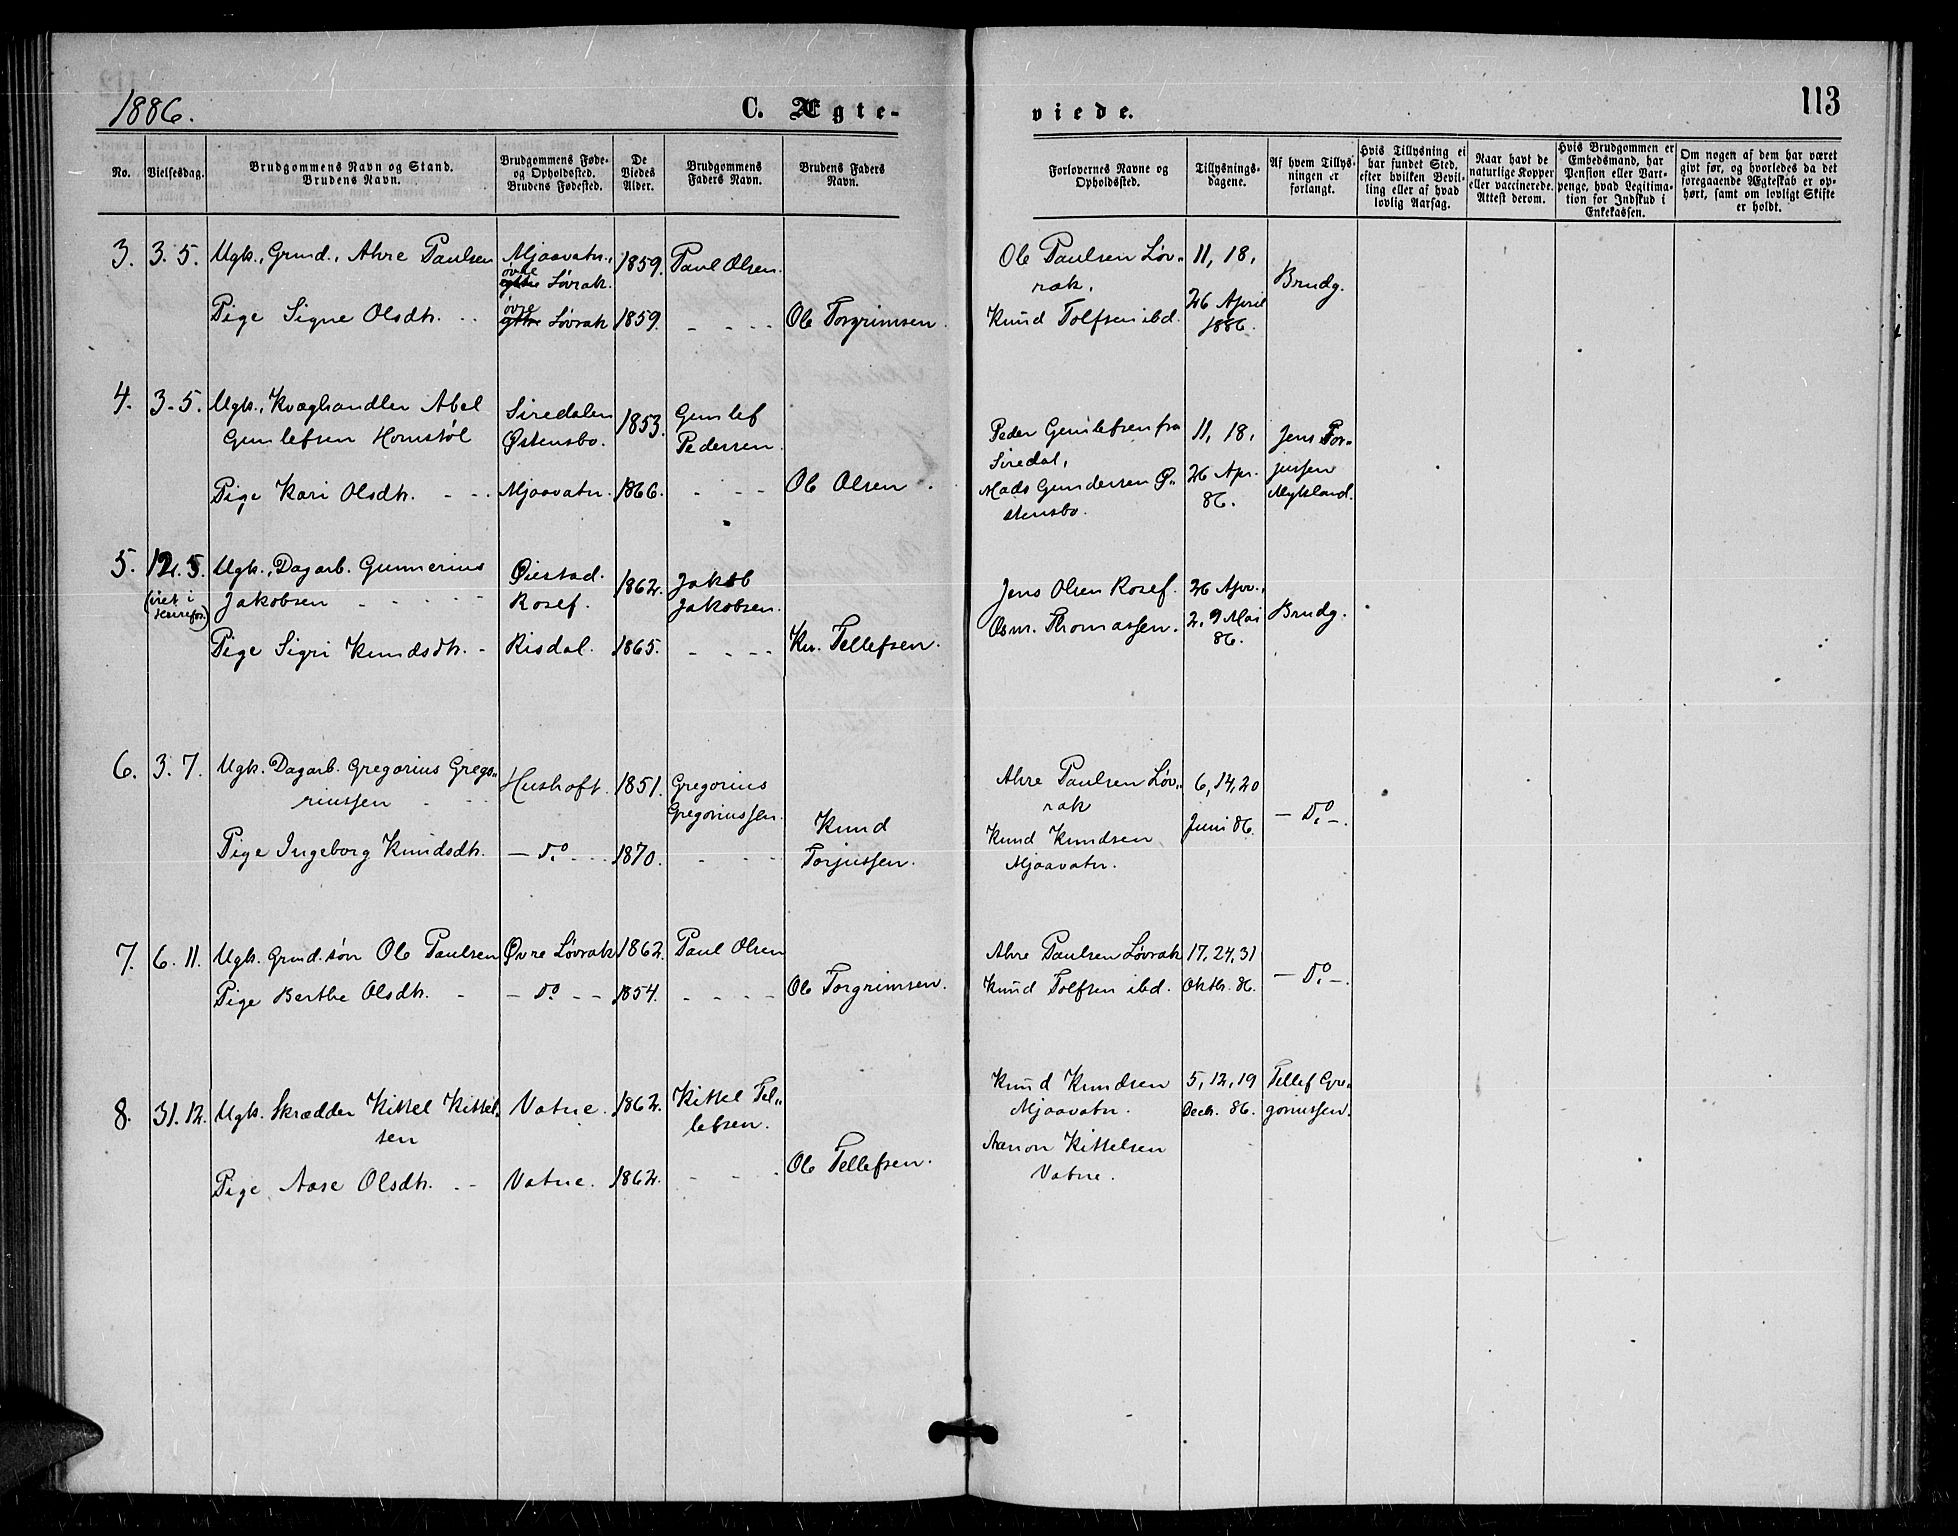 1886.
C. Ægte-
viede.
113
No.
Vielsesdag.
Brudgommens Navn og Stand.
Brudens Navn.
Brudgommens Føde-
og Opholdssted.
Brudens Fødested.
De
Viedes
Alder.
Brudgommens
Faders Navn.
Brudens Faders
Navn.
Forlovernes Navne og
Opholdssted.
Tillysnings-
dagene.
Af hvem Tillys-
ningen er
forlangt.
Hvis Tillysning ei
har fundet Sted,
efter hvilken Bevil-
ling eller af hvad
lovlig Aarsag.
Naar havt de
naturlige Kopper
eller vaccinerede.
Attest derom.
Hvis Brudgommen er
Embedsmand, har
Pension eller Vart-
penge, hvad Legitima-
tion for Indskud i
Enkekassen.
Om nogen af dem har været
gift før, og hvorledes da det
foregaaende Ægteskab er op-
hørt, samt om lovligt Skifte
er holdt.
3. 3. 5. Ugk., Grmd., Ahre Paulsen Mjaavatn., 1859. Paul Olsen.
øvre Løvrak.
Pige Signe Olsdtr. øvre Løvrak 1859. Ole Torgrimsen.
Ole Paulsen Løv-
rak,
Knud Tolfsen ibd.
11, 18,
26 April
1886.
Brudg.
4. 3. 5. Ugk., Kvæghandler Abel
Gunlefsen Homstøl
Siredalen
Østensbo.
1853. Gunlef
Pedersen.
Pige Kari Olsdtr. Mjaavatn. 1866. Ole Olsen.
Peder Gunlefsen fra
Siredal,
Mads Gundersen Ø-
stensbo.
11, 18,
26 Apr.
86.
Jens Tor-
jussen
Mykland.
5. 12. 5. Ugk., Dagarb. Gunnerius
Jakobsen
Øiestad.
Rosef.
1862. Jakob
Jakobsen.
Pige Sigri Knudsdtr. Risdal. 1865. Kn. Tellefsen.
Jens Olsen Rosef.
Osm. Thomassen.
26 Apr.,
2, 9 Mai
86.
Brudg.
6. 3. 7. Ugk. Dagarb. Gregorius Grego-
riussen
Hushoft. 1851. Gregorius
Gregoriussen.
Pige Ingeborg Knudsdtr. – Do – 1870. Knud
Torjussen.
Ahre Paulsen Løv-
rak
Knud Knudsen
Mjaavatn.
6, 14, 20
Juni 86.
– Do –.
7. 6. 11. Ugk. Grmd.søn Ole Paulsen Øvre Løvrak 1862. Paul Olsen
Pige Berthe Olsdtr. – Do – 1854. Ole Torgrimsen.
Ahre Paulsen Løvrak
Knud Tolfsen ibd.
17, 24, 31
Oktbr. 86.
– Do –.
8. 31. 12. Ugk. Skrædder Kittel Kittel-
sen
Vatne. 1862. Kittel Tel-
lefsen.
Pige Aase Olsdtr. Vatne. 1862. Ole Tellefsen.
Knud Knudsen
Mjaavatn.
Aanon Kittelsen
Vatne.
5, 12, 19
Decbr. 86.
Tellef Gre-
goriussen.